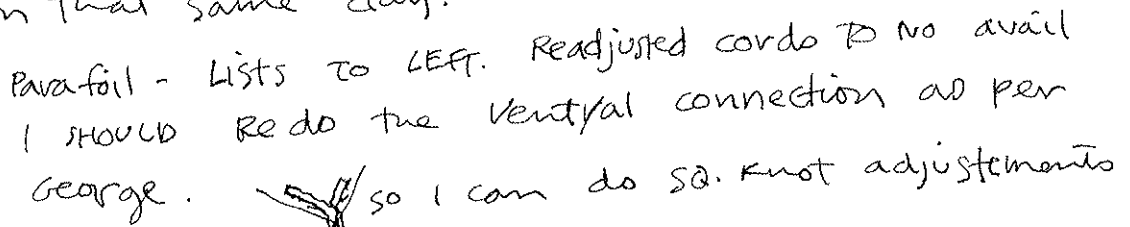 n that same day.
Parafoil - Lists to LEFT. Readjusted cords to no avail
I SHOULD Redo the Ventral connection as per
George. so I can do sq. knot adjustements